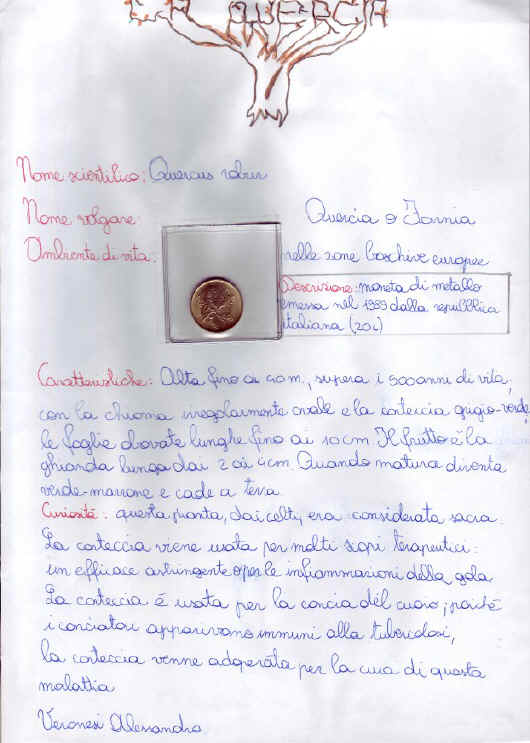 LA QUERCIA
Nome scientifico: Quercus robur
Nome volgare: Quercia o Farnia
Ambiente di vita: nelle zone boschive europee
Descrizione: moneta di metallo
emessa nel 1989 dalla repubblica
italiana (20£)
Caratteristiche: Alta fino ai 40m, supera i 500anni di vita,
con la chioma irregolarmente ovale e la corteccia grigio-verde,
le foglie obovate lunghe fino ai 10cm. Il frutto è la
ghianda lunga dai 2 ai 4cm. Quando matura diventa
verde-marrone e cade a terra.
Curiosità: questa pianta, dai celti, era considerata sacra.
La corteccia viene usata per molti scopi terapeutici:
un efficace astringente o per le infiammazioni della gola
La corteccia è usata per la concia del cuoio; poiché
i conciatori apparivano immuni alla tubercolosi,
la corteccia venne adoperata per la cura di questa
malattia
Veronesi Alessandro